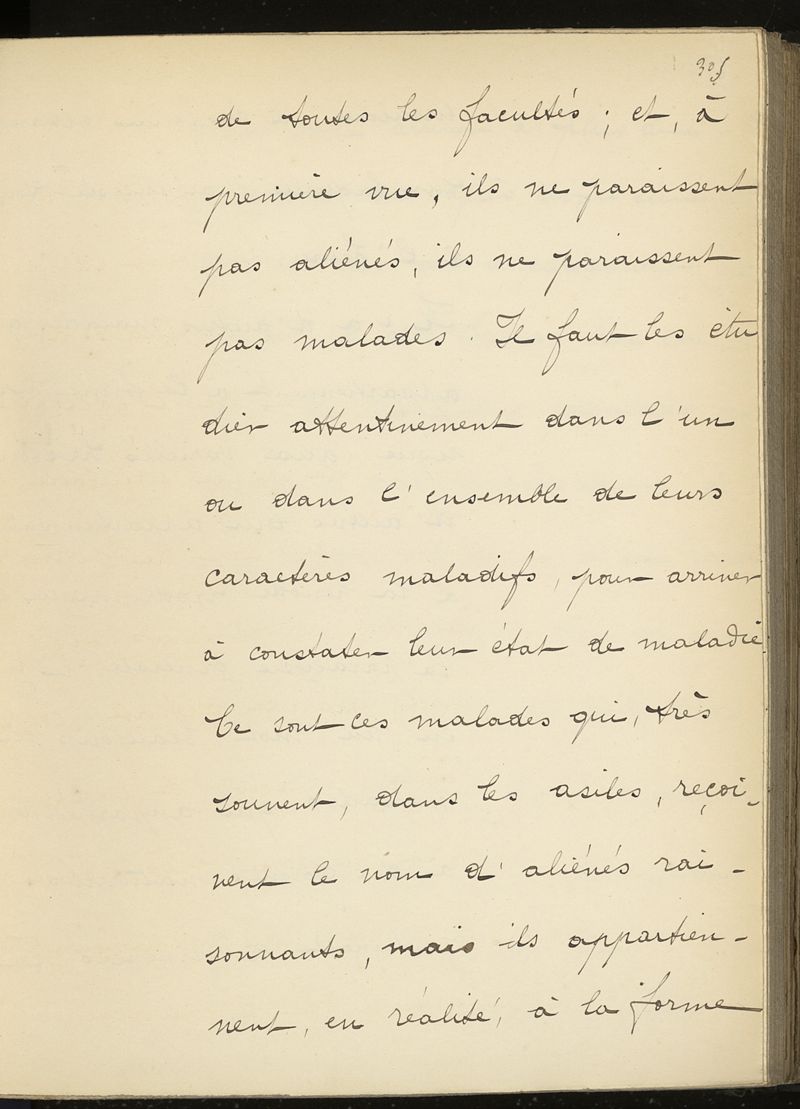 305
de toutes les facultés ; et, à
première vue, ils ne paraissent
pas aliénés, ils ne paraissent
pas malades. Il faut les étu
dier attentivement dans l'un
ou dans l'ensemble de leurs
caractères maladifs, pour arriver
à constater leur état de maladie.
Ce sont ces malades qui, très
souvent, dans les asiles, reçoi-
vent le nom d'aliénés rai-
sonnants, mais ils appartien-
nent, en réalité, à la forme